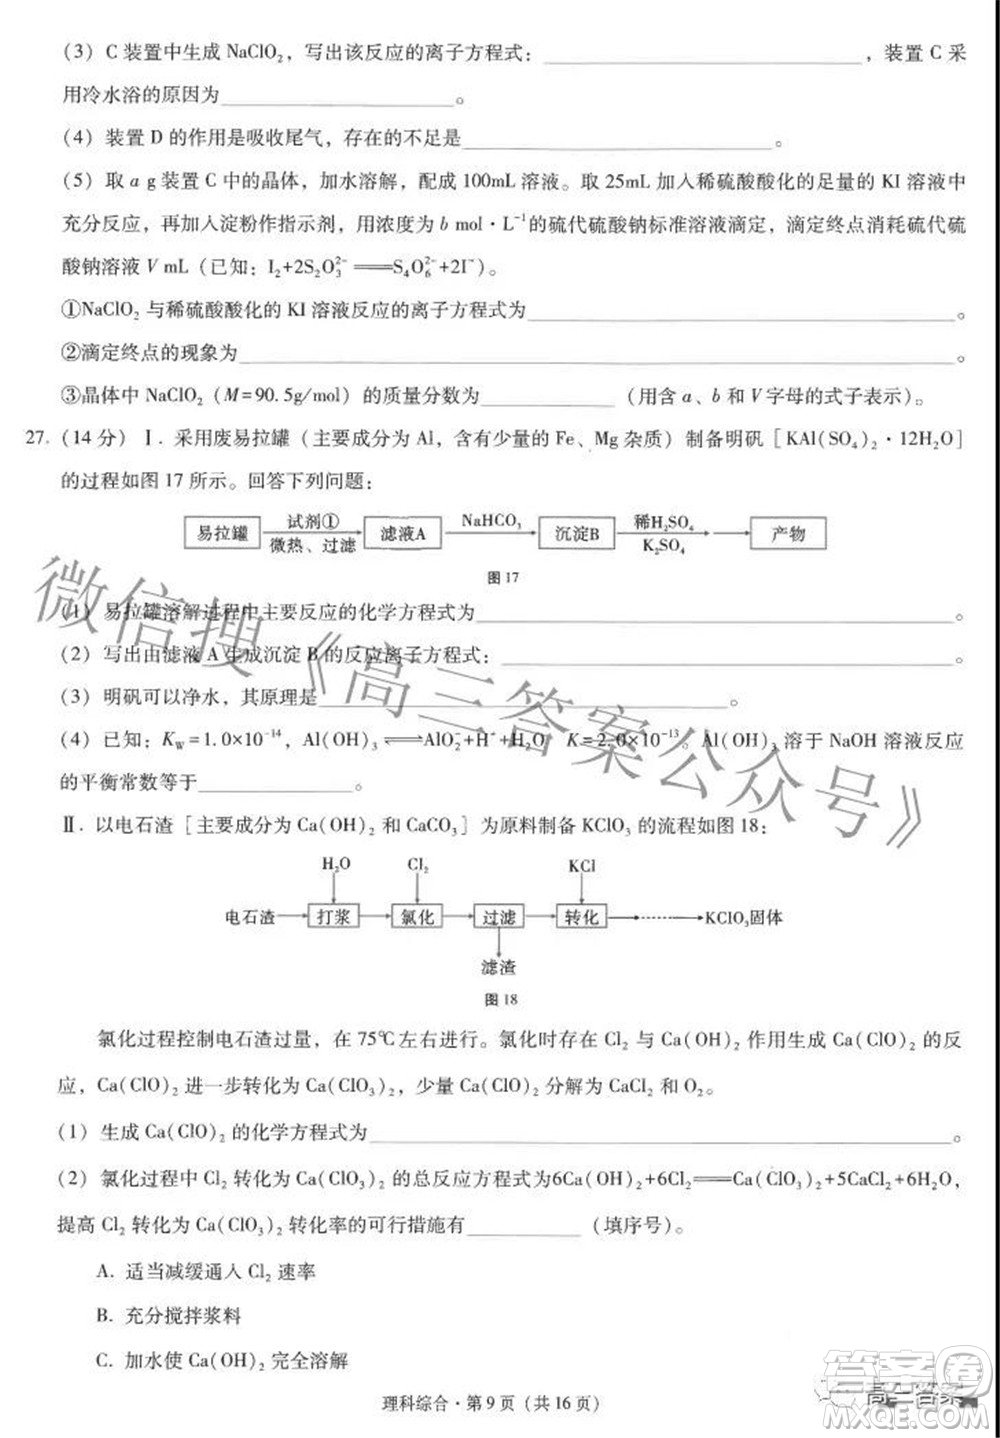 （3）C 装置中生成 NaClO₂，写出该反应的离子方程式：____________，装置 C 采
用冷水浴的原因为____________。
（4）装置 D 的作用是吸收尾气，存在的不足是____________。
（5）取 a g 装置 C 中的晶体，加水溶解，配成 100mL 溶液。取 25mL 加入稀硫酸酸化的足量的 KI 溶液中
充分反应，再加入淀粉作指示剂，用浓度为 b mol·L⁻¹的硫代硫酸钠标准溶液滴定，滴定终点消耗硫代硫
酸钠溶液 V mL（已知：I₂+2S₂O₃²⁻══S₄O₆²⁻+2I⁻）。
①NaClO₂ 与稀硫酸酸化的 KI 溶液反应的离子方程式为____________。
②滴定终点的现象为____________。
③晶体中 NaClO₂（M=90.5g/mol）的质量分数为____________（用含 a、b 和 V 字母的式子表示）。
27.（14 分）Ⅰ．采用废易拉罐（主要成分为 Al，含有少量的 Fe、Mg 杂质）制备明矾［KAl(SO₄)₂·12H₂O］
的过程如图 17 所示。回答下列问题：
易拉罐 试剂① 微热、过滤 滤液A NaHCO₃ 沉淀B 稀H₂SO₄ K₂SO₄ 产物
图 17
（1）易拉罐溶解过程中主要反应的化学方程式为____________。
（2）写出由滤液 A 生成沉淀 B 的反应离子方程式：____________。
（3）明矾可以净水，其原理是____________。
（4）已知：K_W=1.0×10⁻¹⁴，Al(OH)₃⇌AlO₂⁻+H⁺+H₂O K=2.0×10⁻¹³。Al(OH)₃ 溶于 NaOH 溶液反应
的平衡常数等于____________。
Ⅱ．以电石渣［主要成分为 Ca(OH)₂ 和 CaCO₃］为原料制备 KClO₃ 的流程如图 18：
H₂O Cl₂ KCl
电石渣 打浆 氯化 过滤 转化 KClO₃固体
滤渣
图 18
氯化过程控制电石渣过量，在 75℃左右进行。氯化时存在 Cl₂ 与 Ca(OH)₂ 作用生成 Ca(ClO)₂ 的反
应，Ca(ClO)₂ 进一步转化为 Ca(ClO₃)₂，少量 Ca(ClO)₂ 分解为 CaCl₂ 和 O₂。
（1）生成 Ca(ClO)₂ 的化学方程式为____________。
（2）氯化过程中 Cl₂ 转化为 Ca(ClO₃)₂ 的总反应方程式为6Ca(OH)₂+6Cl₂══Ca(ClO₃)₂+5CaCl₂+6H₂O，
提高 Cl₂ 转化为 Ca(ClO₃)₂ 转化率的可行措施有____________（填序号）。
A．适当减缓通入 Cl₂ 速率
B．充分搅拌浆料
C．加水使 Ca(OH)₂ 完全溶解
理科综合·第 9 页（共 16 页）
微信搜《高三答案公众号》
答案圈
高三答案
MXQE.COM